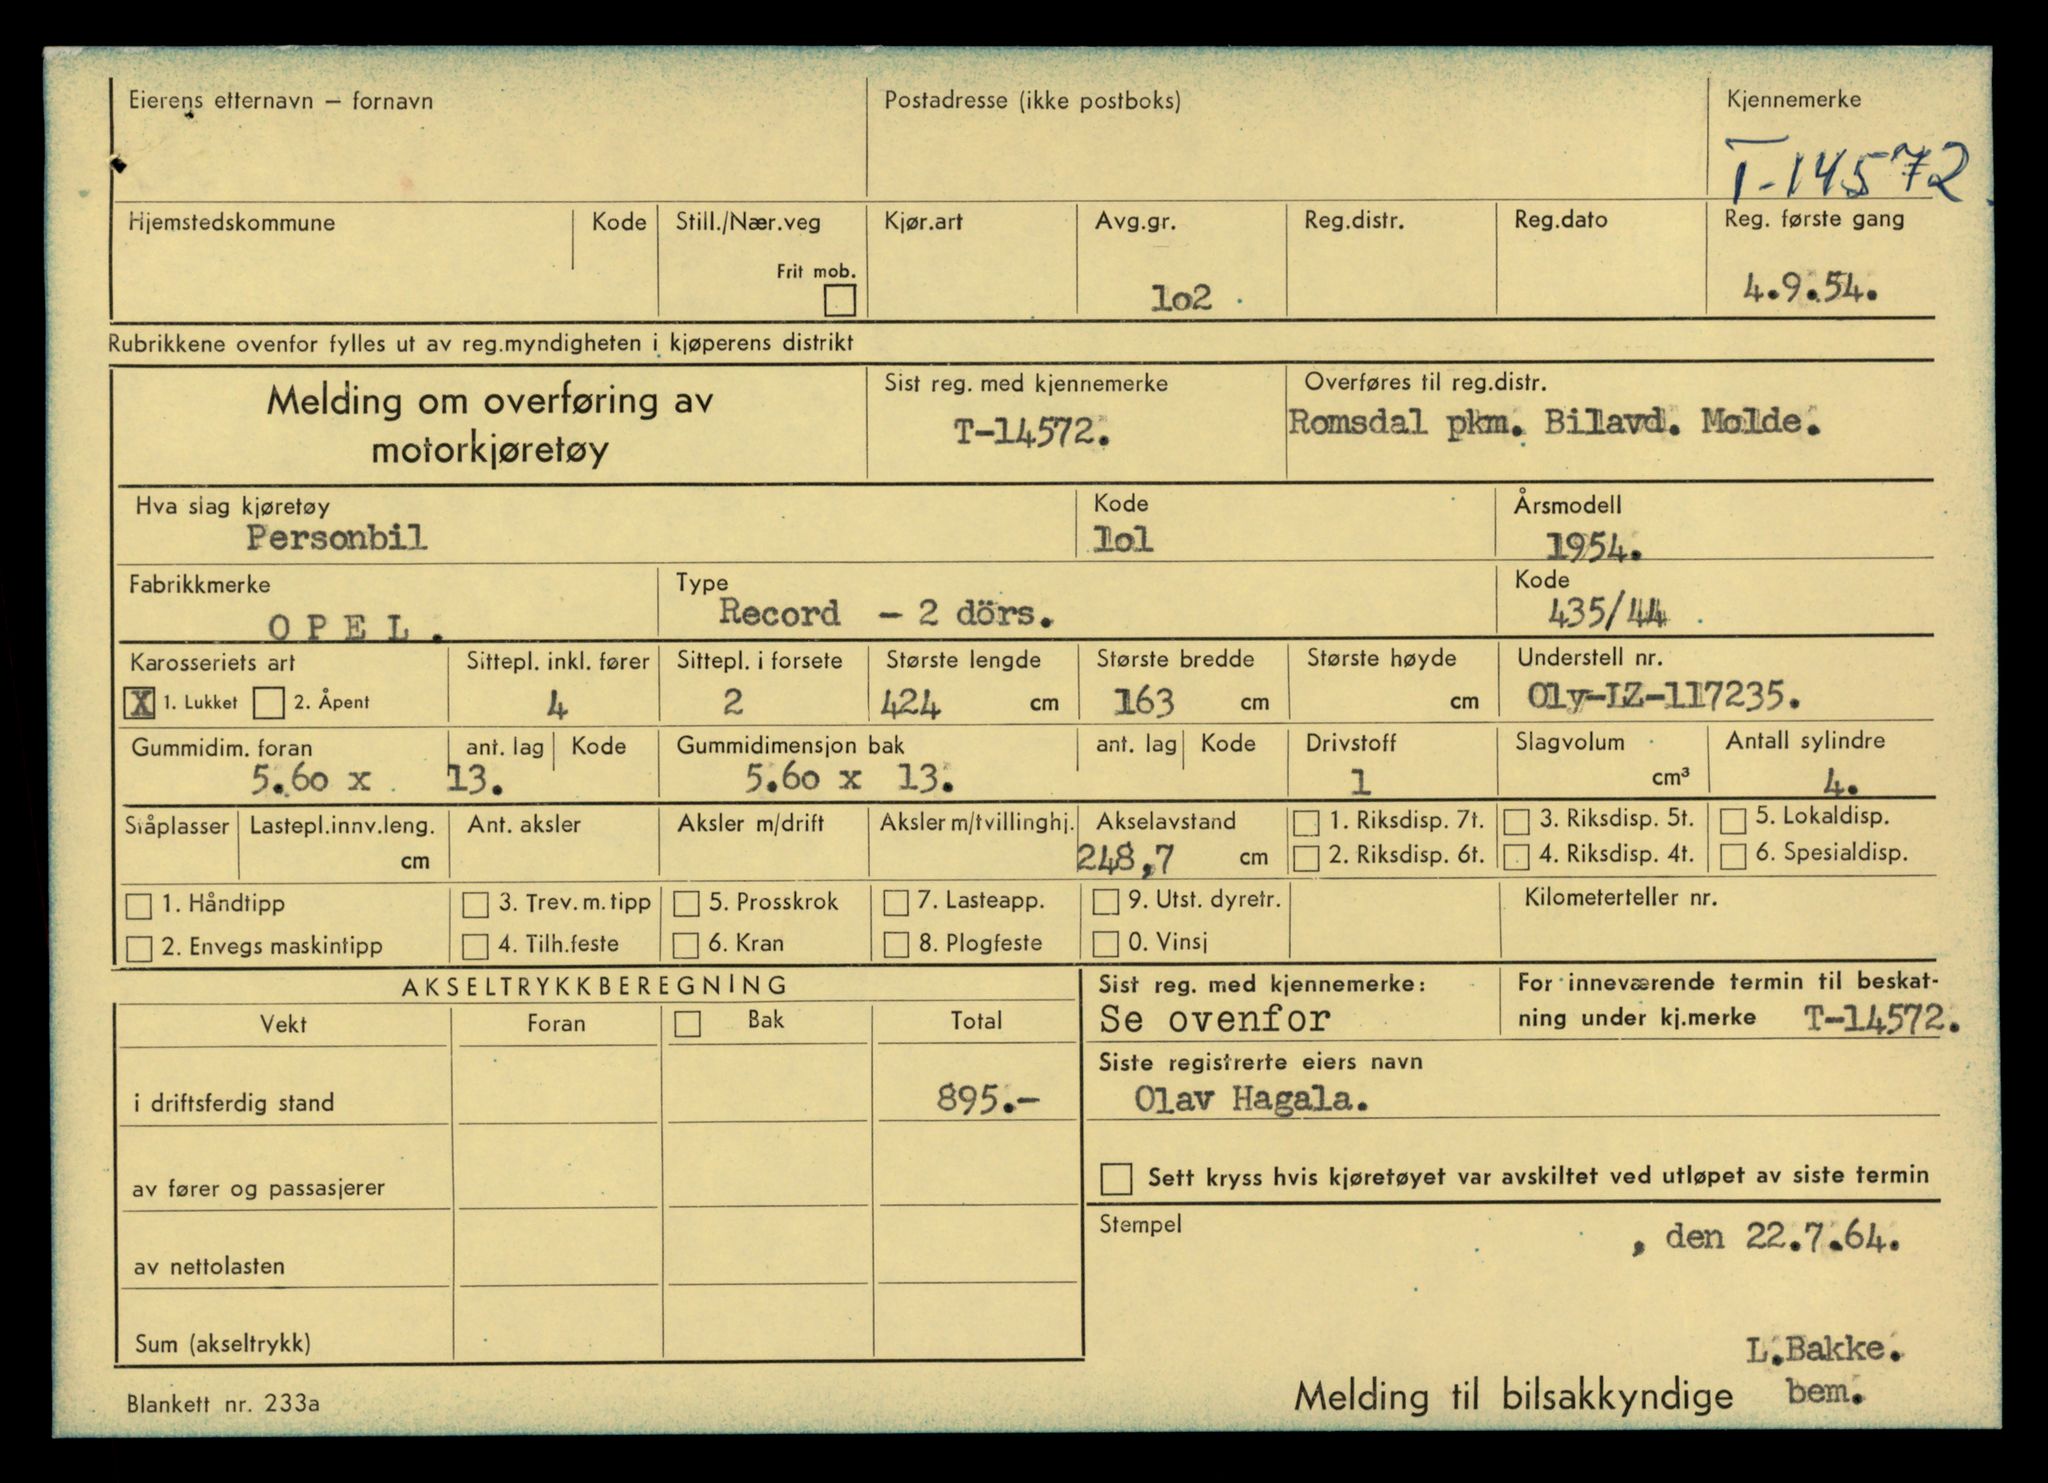 Eierens etternavn – fornavn Postadresse (ikke postboks) Kjennemerke
T-14572
Hjemstedskommune Kode Still./Nær.veg Kjør.art Avg.gr. Reg.distr. Reg.dato Reg. første gang
Frit mob. ☐ 1o2 4.9.54.
Rubrikkene ovenfor fylles ut av reg.myndigheten i kjøperens distrikt
Melding om overføring av Sist reg. med kjennemerke Overføres til reg.distr.
motorkjøretøy T-14572. Romsdal pkm. Bilavd. Molde.
Hva slag kjøretøy Kode Årsmodell
Personbil 1o1 1954.
Fabrikkmerke Type Kode
O P E L . Record - 2 dörs. 435/44
Karosseriets art Sittepl. inkl. fører Sittepl. i forsete Største lengde Største bredde Største høyde Understell nr.
☒ 1. Lukket ☐ 2. Åpent 4 2 424 cm 163 cm cm Oly-LZ-117235.
Gummidim. foran ant. lag Kode Gummidimensjon bak ant. lag Kode Drivstoff Slagvolum Antall sylindre
5.6o x 13. 5.6o x 13. 1 cm³ 4.
Ståplasser Lastepl.innv.leng. Ant. aksler Aksler m/drift Aksler m/tvillinghj. Akselavstand ☐ 1. Riksdisp. 7t. ☐ 3. Riksdisp. 5t. ☐ 5. Lokaldisp.
cm 248,7 cm ☐ 2. Riksdisp. 6t. ☐ 4. Riksdisp. 4t. ☐ 6. Spesialdisp.
☐ 1. Håndtipp ☐ 3. Trev. m. tipp ☐ 5. Prosskrok ☐ 7. Lasteapp. ☐ 9. Utst. dyretr. Kilometerteller nr.
☐ 2. Envegs maskintipp ☐ 4. Tilh.feste ☐ 6. Kran ☐ 8. Plogfeste ☐ 0. Vinsj
AKSELTRYKKBEREGNING Sist reg. med kjennemerke: For inneværende termin til beskat-
Vekt Foran ☐ Bak Total Se ovenfor ning under kj.merke T-14572.
Siste registrerte eiers navn
i driftsferdig stand 895.- Olav Hagala.
av fører og passasjerer ☐ Sett kryss hvis kjøretøyet var avskiltet ved utløpet av siste termin
Stempel , den 22.7.64.
av nettolasten
Sum (akseltrykk) L.Bakke.
Blankett nr. 233a Melding til bilsakkyndige bem.